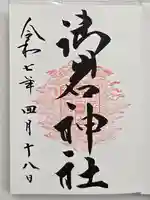 御岩神社
令和七年四月十八日